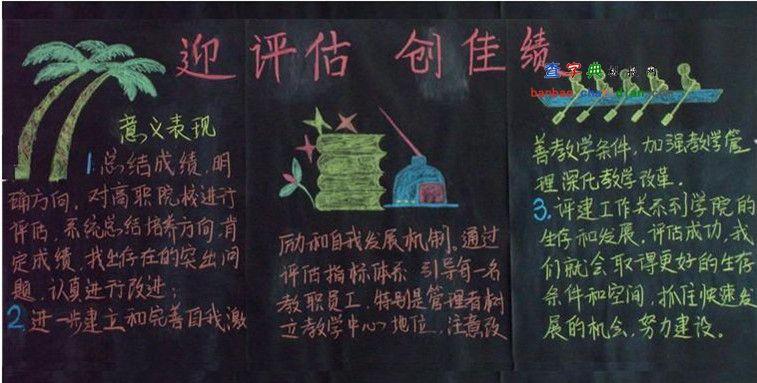 迎评估 创佳绩
意义表现
1.总结成绩，明
确方向，对高职院校进行
评估，系统总结培养方向，肯
定成绩，找出存在的突出问
题，认真进行改进；
2.进一步建立和完善自我激
励和自我发展机制。通过
评估指标体系 引导每一名
教职员工，特别是管理者树
立教学中心地位，注意改
查字典
善教学条件，加强教学管
理深化教学改革．
3.评建工作关系到学院的
生存和发展，评估成功，我
们就会取得更好的生存
条件和空间，抓住快速发
展的机会，努力建设。